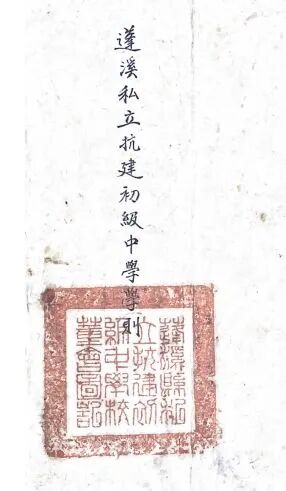 蓬溪私立抗建初級中學學則
蓬溪縣私
立抗建初
級中學校
董會圖記